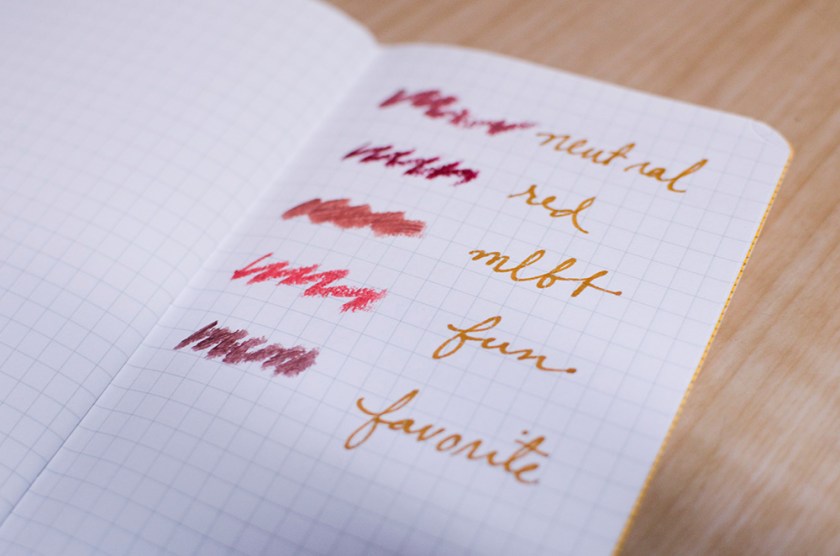 neutral
red
mlbt
fun.
favorite